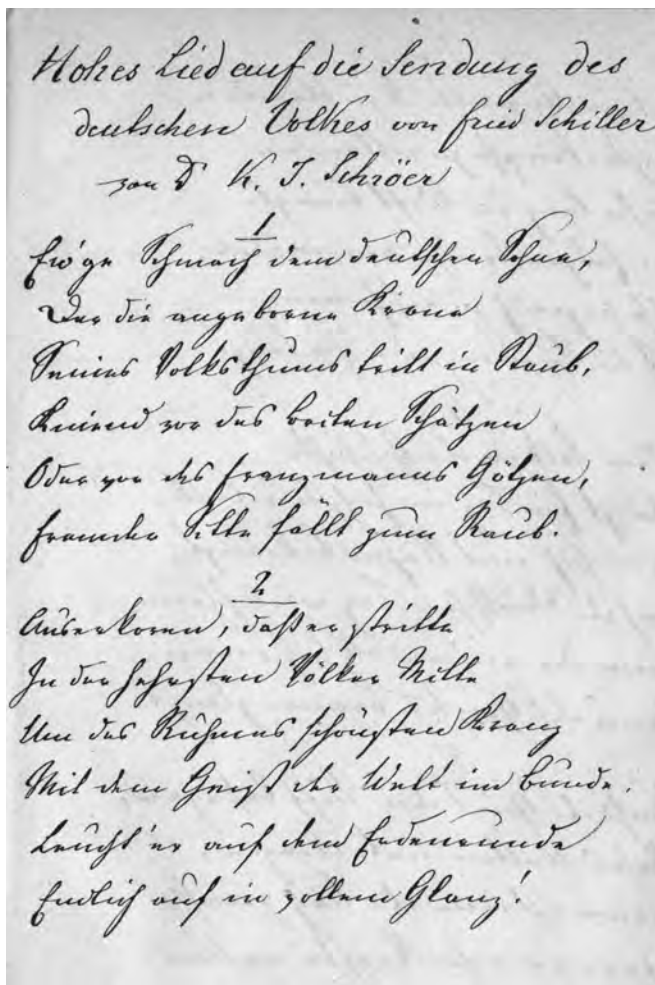 Hohes Lied auf die Sendung des
deutschen Volkes von Fried Schiller
von Dr K. J. Schröer
1
Ew'ge Schmach dem deutschen Sohne,
Der die angeborne Krone
Seines Volksthums tritt in Staub,
Knieend vor des britten Schätzen
Oder vor des Franzmanns Götzen,
Fremder Sitte fällt zum Raub.
2
Auserkoren, daß er stritte
In der hehrsten Völker Mitte
Um des Ruhmes schönsten Kranz
Mit dem Geist der Welt im Bunde.
Leucht' er auf dem Erdenrunde
Endlich auf in vollem Glanz!